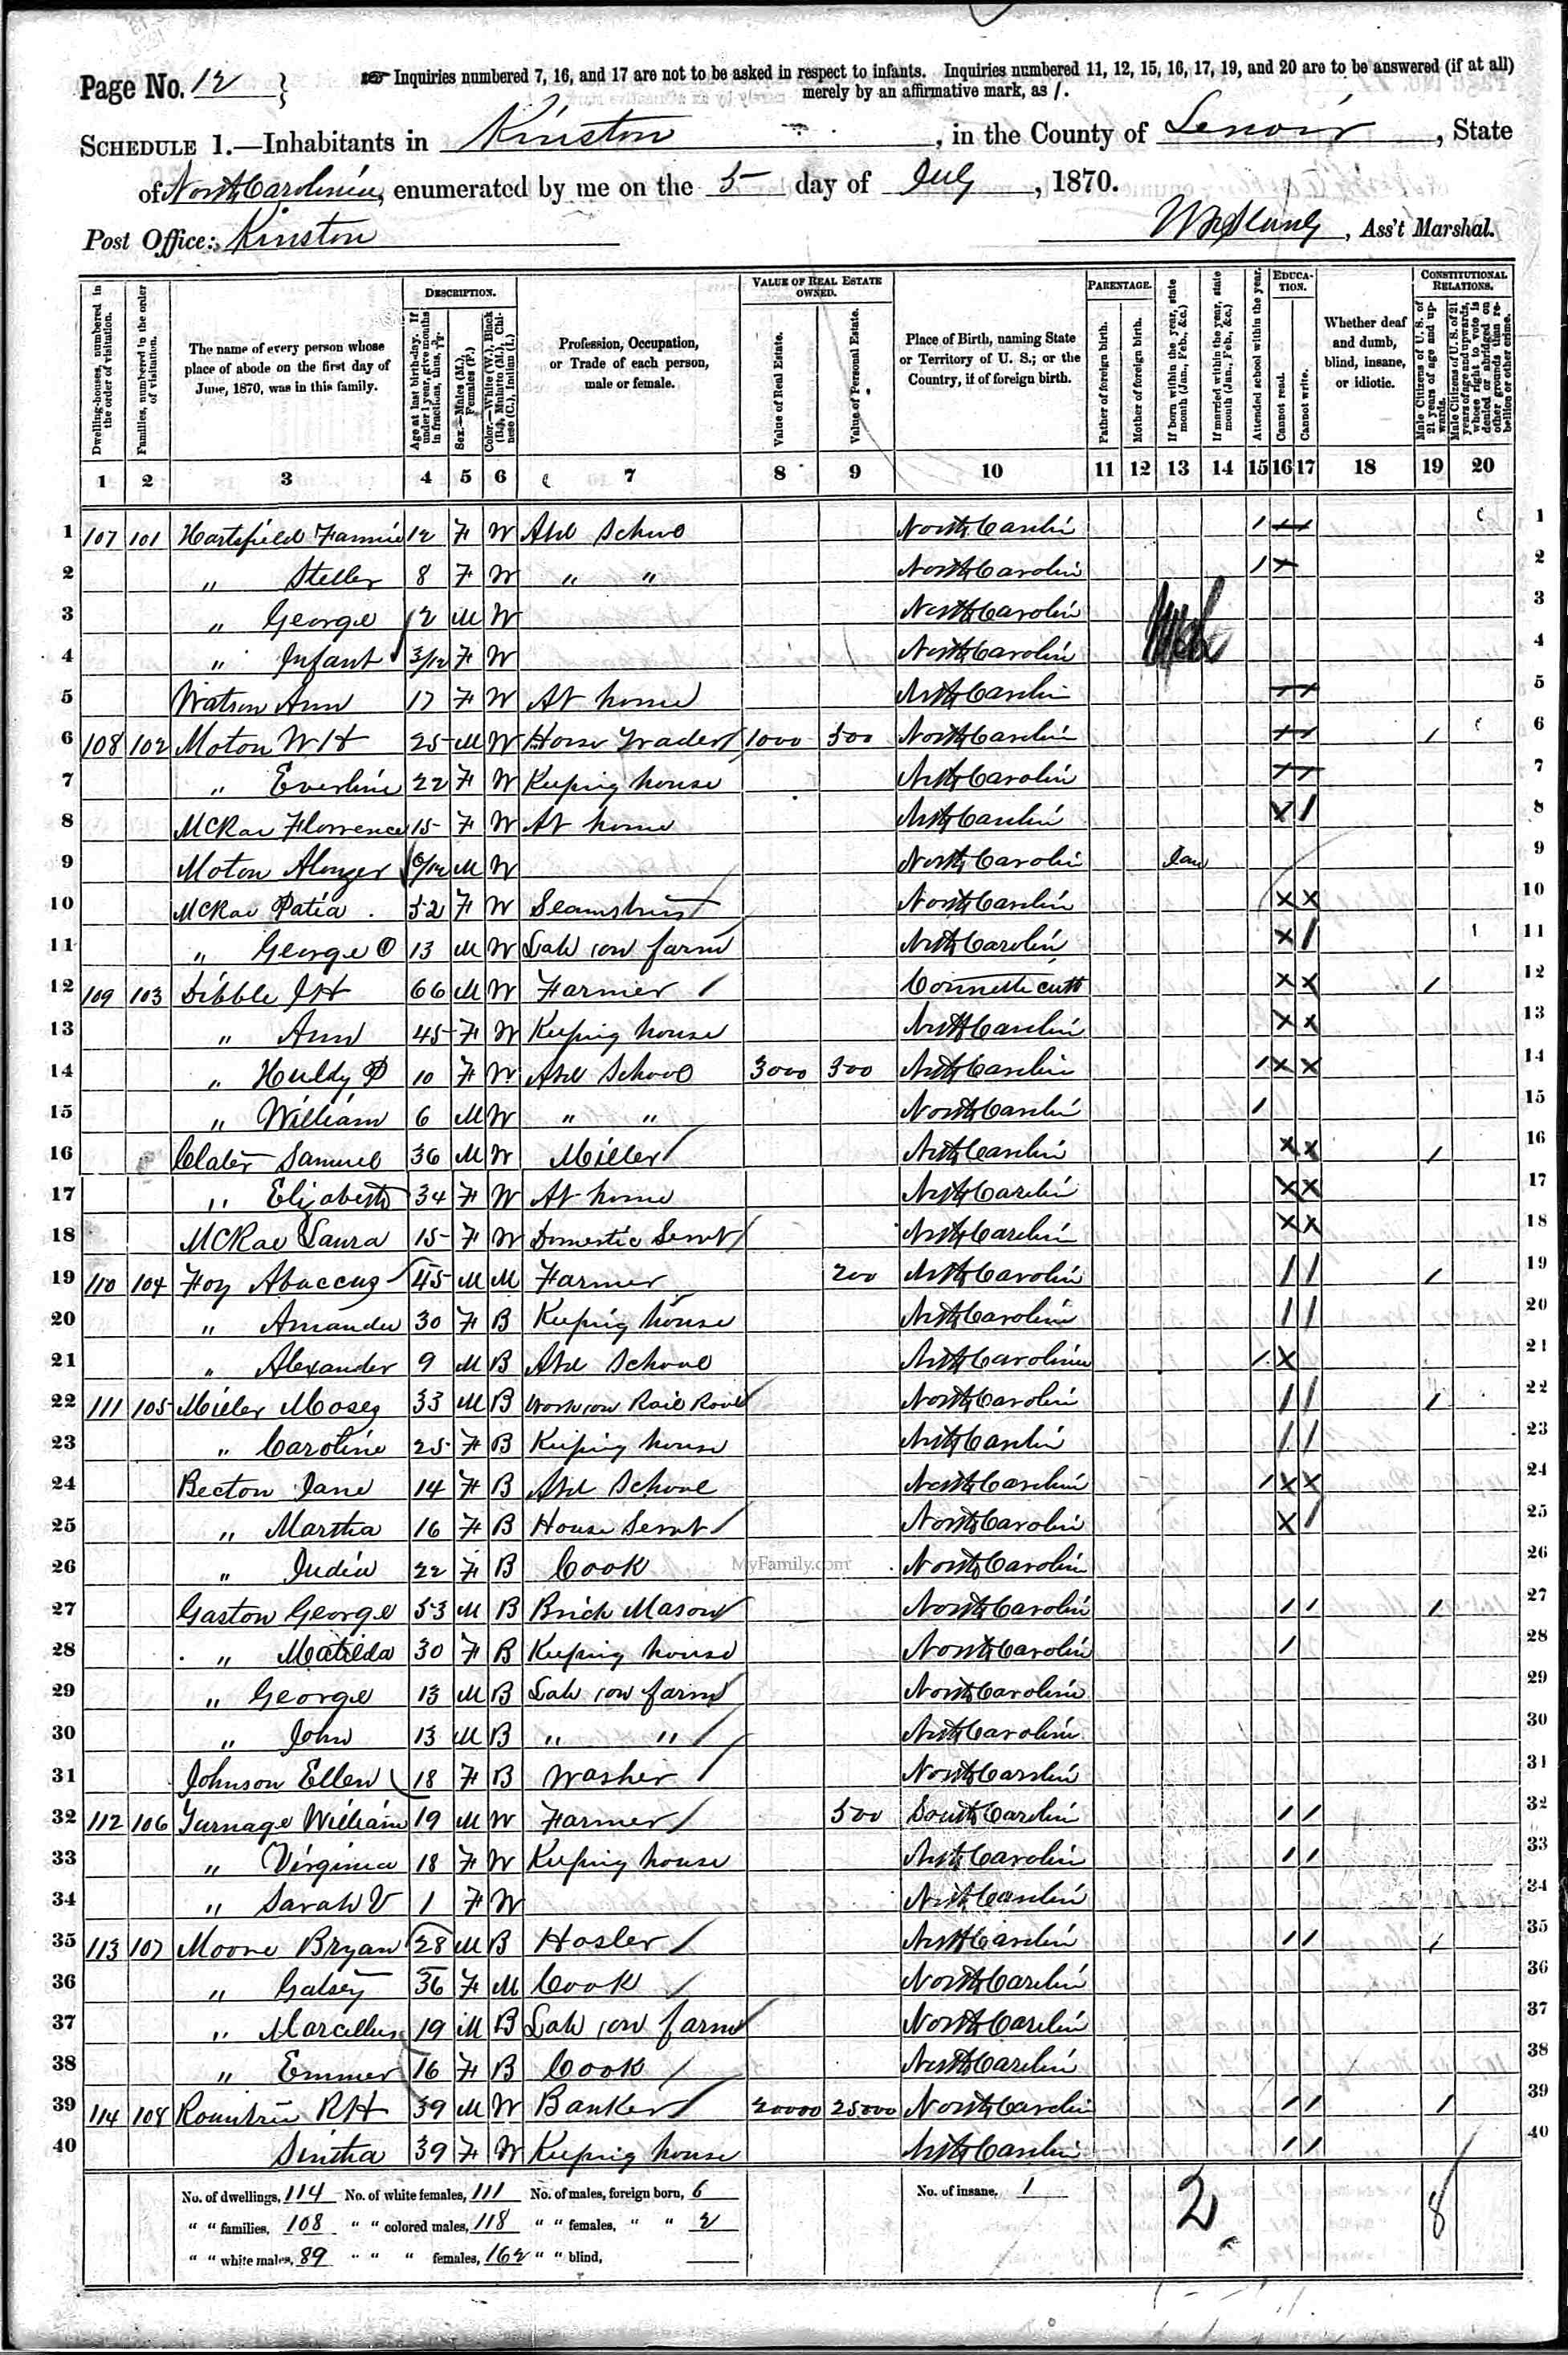 Page No. 12 } Inquiries numbered 7, 16, and 17 are not to be asked in respect to infants. Inquiries numbered 11, 12, 15, 16, 17, 19, and 20 are to be answered (if at all)
merely by an affirmative mark, as /.
SCHEDULE 1.—Inhabitants in Kinston, in the County of Lenoir, State
of North Carolina, enumerated by me on the 5 day of July, 1870.
Post Office: Kinston , Ass't Marshal.
Dwelling-houses, numbered in the order of visitation. Families, numbered in the order of visitation. The name of every person whose place of abode on the first day of June, 1870, was in this family. DESCRIPTION. Age at last birth-day. If under 1 year, give months in fractions, thus, 3/12. Sex.—Males (M.), Females (F.) Color.—White (W.), Black (B.), Mulatto (M.), Chinese (C.), Indian (I.) Profession, Occupation, or Trade of each person, male or female. VALUE OF REAL ESTATE OWNED. Value of Real Estate. Value of Personal Estate. Place of Birth, naming State or Territory of U. S.; or the Country, if of foreign birth. PARENTAGE. Father of foreign birth. Mother of foreign birth. If born within the year, state month (Jan., Feb., &c.) If married within the year, state month (Jan., Feb., &c.) Attended school within the year. EDUCATION. Cannot read. Cannot write. Whether deaf and dumb, blind, insane, or idiotic. CONSTITUTIONAL RELATIONS. Male Citizens of U. S. of 21 years of age and upwards. Male Citizens of U. S. of 21 years of age and upwards, whose right to vote is denied or abridged on other grounds than rebellion or other crime.
1 2 3 4 5 6 7 8 9 10 11 12 13 14 15 16 17 18 19 20
1 107 101 Hartsfield Fannie 12 F W Atd Schoo North Carolin / 1
2 " Steller 8 F W " " North Carolin / 2
3 " George 2 M W North Carolin 3
4 " Infant 3/12 F W North Carolin 4
5 Watson Ann 17 F W At home North Carolin 5
6 108 102 Moton W H 25 M W Horse Trader 1000 500 North Carolin / 6
7 " Everline 22 F W Keeping house North Carolin 7
8 McRae Florrence 15 F W At home North Carolin X / 8
9 Moton Alonzer M W North Carolin Jan 9
10 McRae Patia 52 F W Seamstress North Carolin X X 10
11 " George O 13 M W Lab on farm North Carolin X / 11
12 109 103 Dibble J H 66 M W Farmer Connetticutt X X / 12
13 " Ann 45 F W Keeping house North Carolin X X 13
14 " Huldy P 10 F W Atd School 3000 300 North Carolin / X X 14
15 " William 6 M W " " North Carolin / 15
16 Samuel 36 M W Miller North Carolin X X / 16
17 " Elizabeth 34 F W At home North Carolin X X 17
18 McRae Laura 15 F W Domestic Servt North Carolin X X 18
19 110 104 Foy Abaccus 45 M M Farmer 200 North Carolin / / / 19
20 " Amanda 30 F B Keeping house North Carolin / / 20
21 " Alexander 9 M B Atd School North Carolina / X 21
22 111 105 Miller Moses 33 M B Work on Rail Road North Carolin / / / 22
23 " Caroline 25 F B Keeping house North Carolin / / 23
24 Becton Jane 14 F B Atd School North Carolin / X X 24
25 " Martha 16 F B House Servt North Carolin X / 25
26 " India 22 F B Cook North Carolin 26
27 Gaston George 53 M B Brick Mason North Carolin / / / 27
28 " Matilda 30 F B Keeping house North Carolin / 28
29 " George 13 M B Lab on farm North Carolin 29
30 " John 13 M B " " North Carolin 30
31 Johnson Ellen 18 F B Washer North Carolin 31
32 112 106 Turnage William 19 M W Farmer 500 South Carolin / / 32
33 " Virginia 18 F W Keeping house North Carolin / / 33
34 " Sarah V 1 F W North Carolin 34
35 113 107 Moore Bryan 28 M B Hosler North Carolin / / / 35
36 " 36 F M Cook North Carolin 36
37 " Marcellus 19 M B Lab on farm North Carolin 37
38 " Emmer 16 F B Cook North Carolin 38
39 114 108 Rountrie R H 39 M W Banker 20000 25000 North Carolin / / / 39
40 Sintha 39 F W Keeping house North Carolin / / 40
MyFamily.com
No. of dwellings, 114 No. of white females, 111 No. of males, foreign born, 6 No. of insane, 1 2 8
" " families, 108 " " colored males, 118 " " females, " " 2
" " white males, 89 " " " females, 162 " " blind,